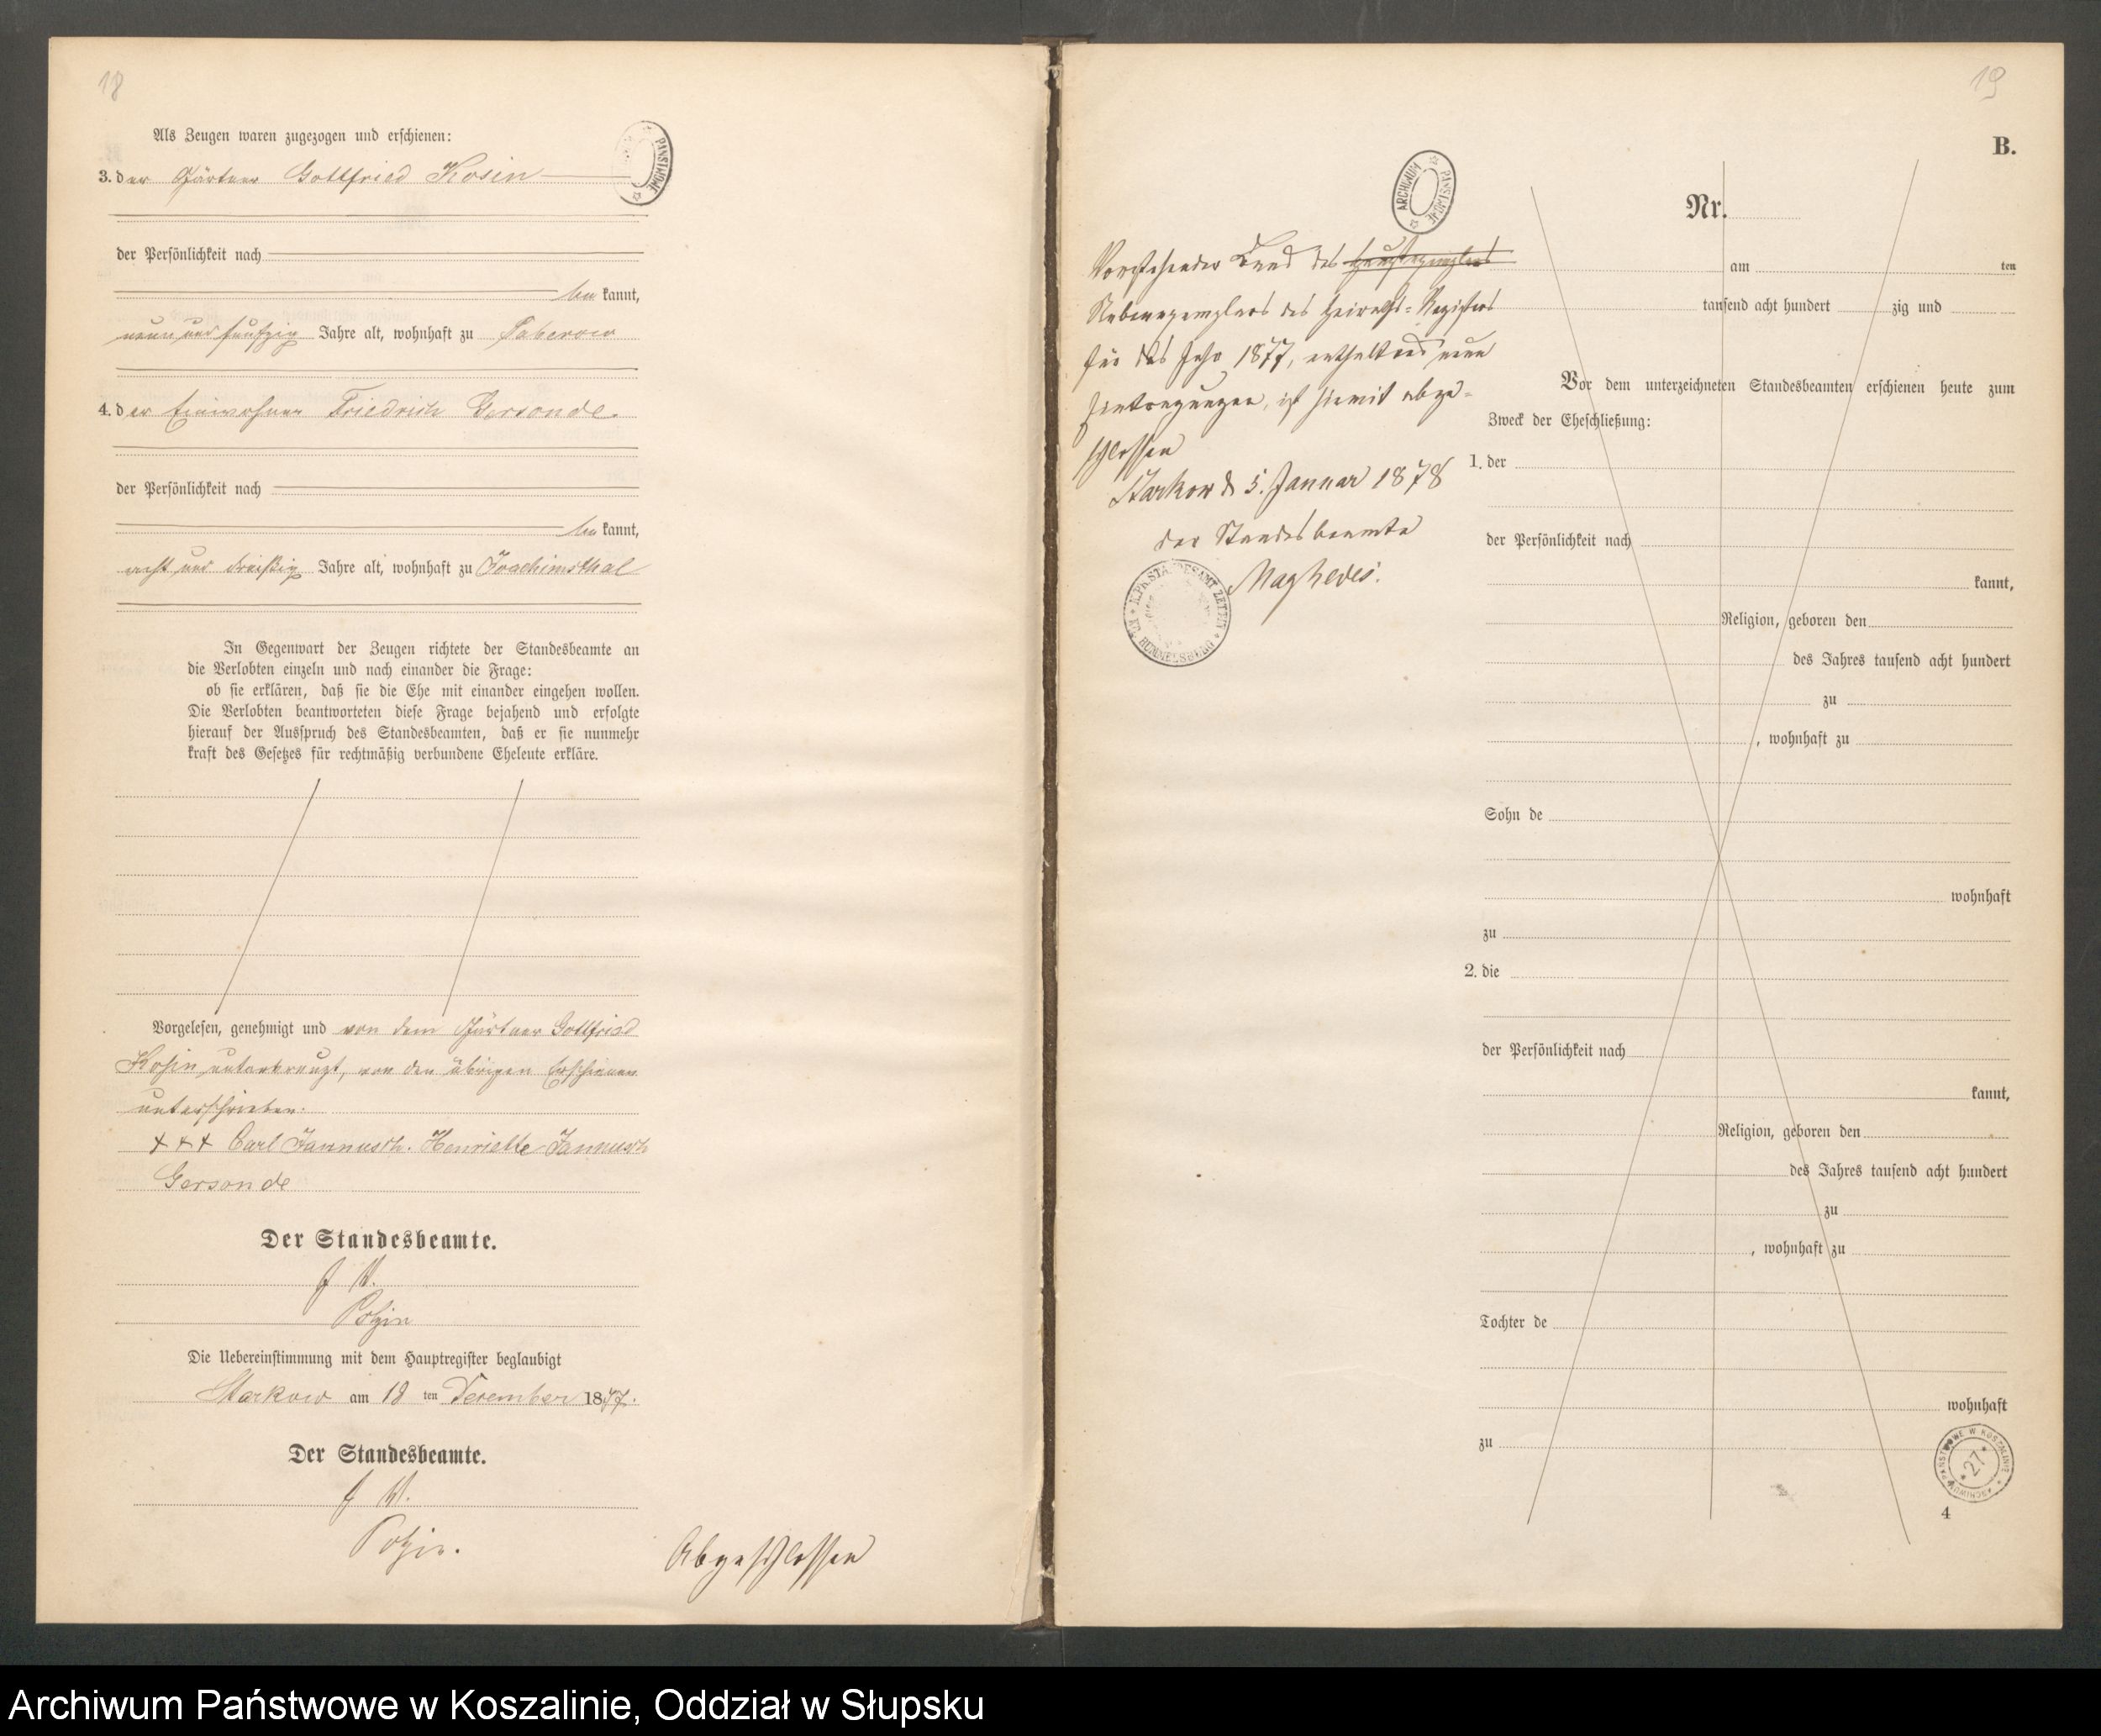 18
Als Zeugen waren zugezogen und erschienen:
3. der Gärtner Gottfried Kosin
der Persönlichkeit nach
be kannt,
neun und fünfzig Jahre alt, wohnhaft zu Saberow
4. der Einwohner Friedrich Gersonde.
der Persönlichkeit nach
be kannt,
acht und dreißig Jahre alt, wohnhaft zu Joachimsthal
In Gegenwart der Zeugen richtete der Standesbeamte an
die Verlobten einzeln und nach einander die Frage:
ob sie erklären, daß sie die Ehe mit einander eingehen wollen.
Die Verlobten beantworteten diese Frage bejahend und erfolgte
hierauf der Ausspruch des Standesbeamten, daß er sie nunmehr
kraft des Gesetzes für rechtmäßig verbundene Eheleute erkläre.
Vorgelesen, genehmigt und von dem Gärtner Gottfried
Kosin unterkreuzt, von den übrigen Erschienen
unterschrieben.
+++ Carl Jannusch. Henriette Jannusch
Gersonde
Der Standesbeamte.
J. V.
Die Uebereinstimmung mit dem Hauptregister beglaubigt
Starkow am 18 ten December 1877.
Der Standesbeamte.
J. V.
Abgeschlossen
PANSTWOWE
19
B.
ARCHIWUM PANSTWOWE
Vorstehender Band des Hauptexemplars
Nebenexemplars des Heiraths-Registers
für das Jahr 1877, enthaltend neun
Eintragungen, ist hiermit abge-
schlossen
Starkow d 5. Januar 1878
der Standesbeamte
K. PR. STANDESAMT ZETTIN
RUMMELSBURG
Nr.
am ten
tausend acht hundert zig und
Vor dem unterzeichneten Standesbeamten erschienen heute zum
Zweck der Eheschließung:
1. der
der Persönlichkeit nach
kannt,
Religion, geboren den
des Jahres tausend acht hundert
zu
, wohnhaft zu
Sohn de
wohnhaft
zu
2. die
der Persönlichkeit nach
kannt,
Religion, geboren den
des Jahres tausend acht hundert
zu
, wohnhaft zu
Tochter de
wohnhaft
zu
ARCHIWUM PAŃSTWOWE W KOSZALINIE
27
4
Archiwum Państwowe w Koszalinie, Oddział w Słupsku